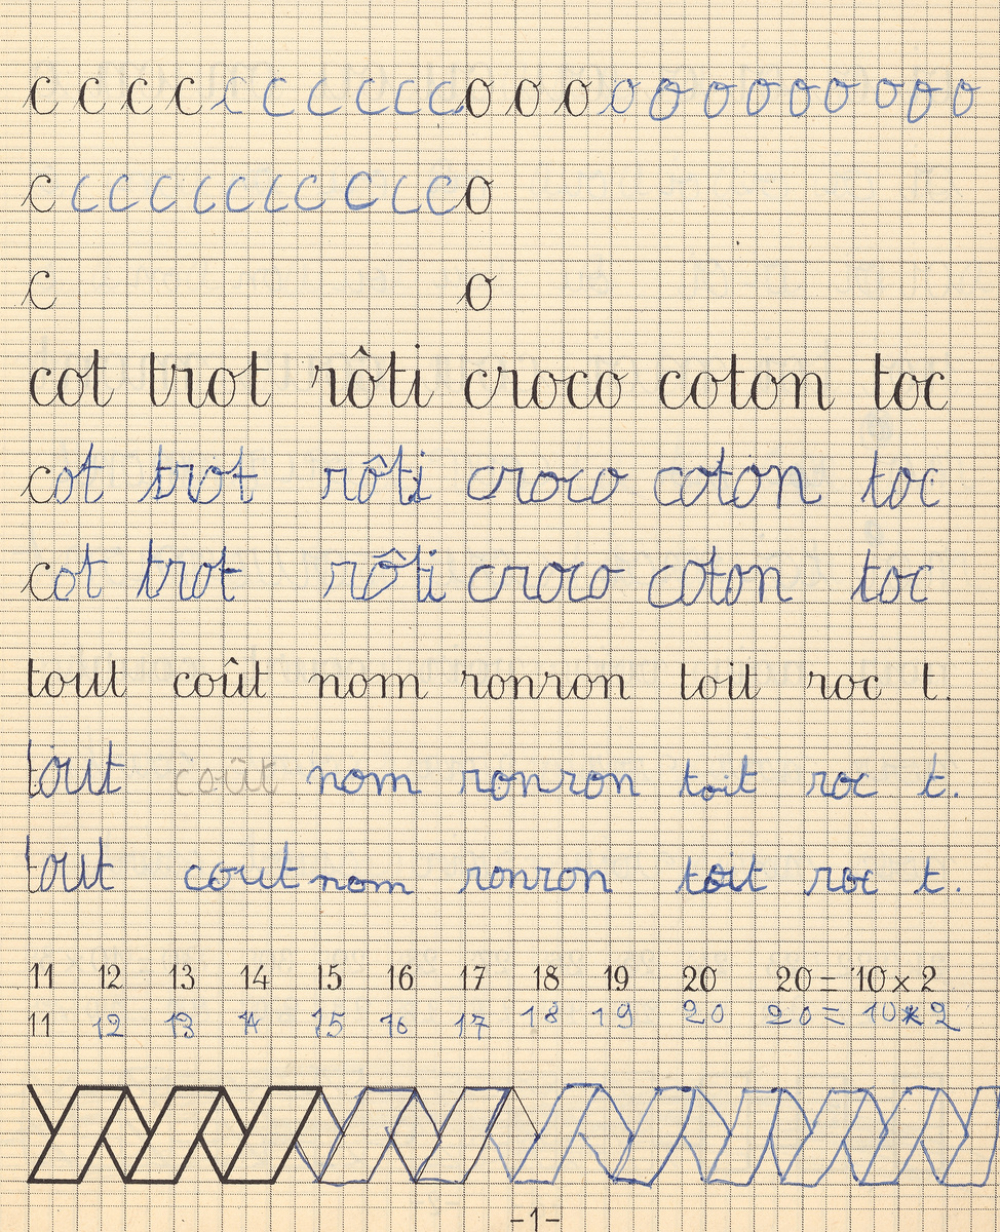 c c c c c c c c c c o o o o o o o o o o o o
c c c c c c c c c c o
c o
cot trot rôti croco coton toc
cot trot rôti croco coton toc
cot trot rôti croco coton toc
tout coût nom ronron toit roc t.
tout coût nom ronron toit roc t.
tout cout nom ronron toit roc t.
11 12 13 14 15 16 17 18 19 20 20 = 10 x 2
11 12 13 14 15 16 17 18 19 20 20 = 10 x 2
-1-